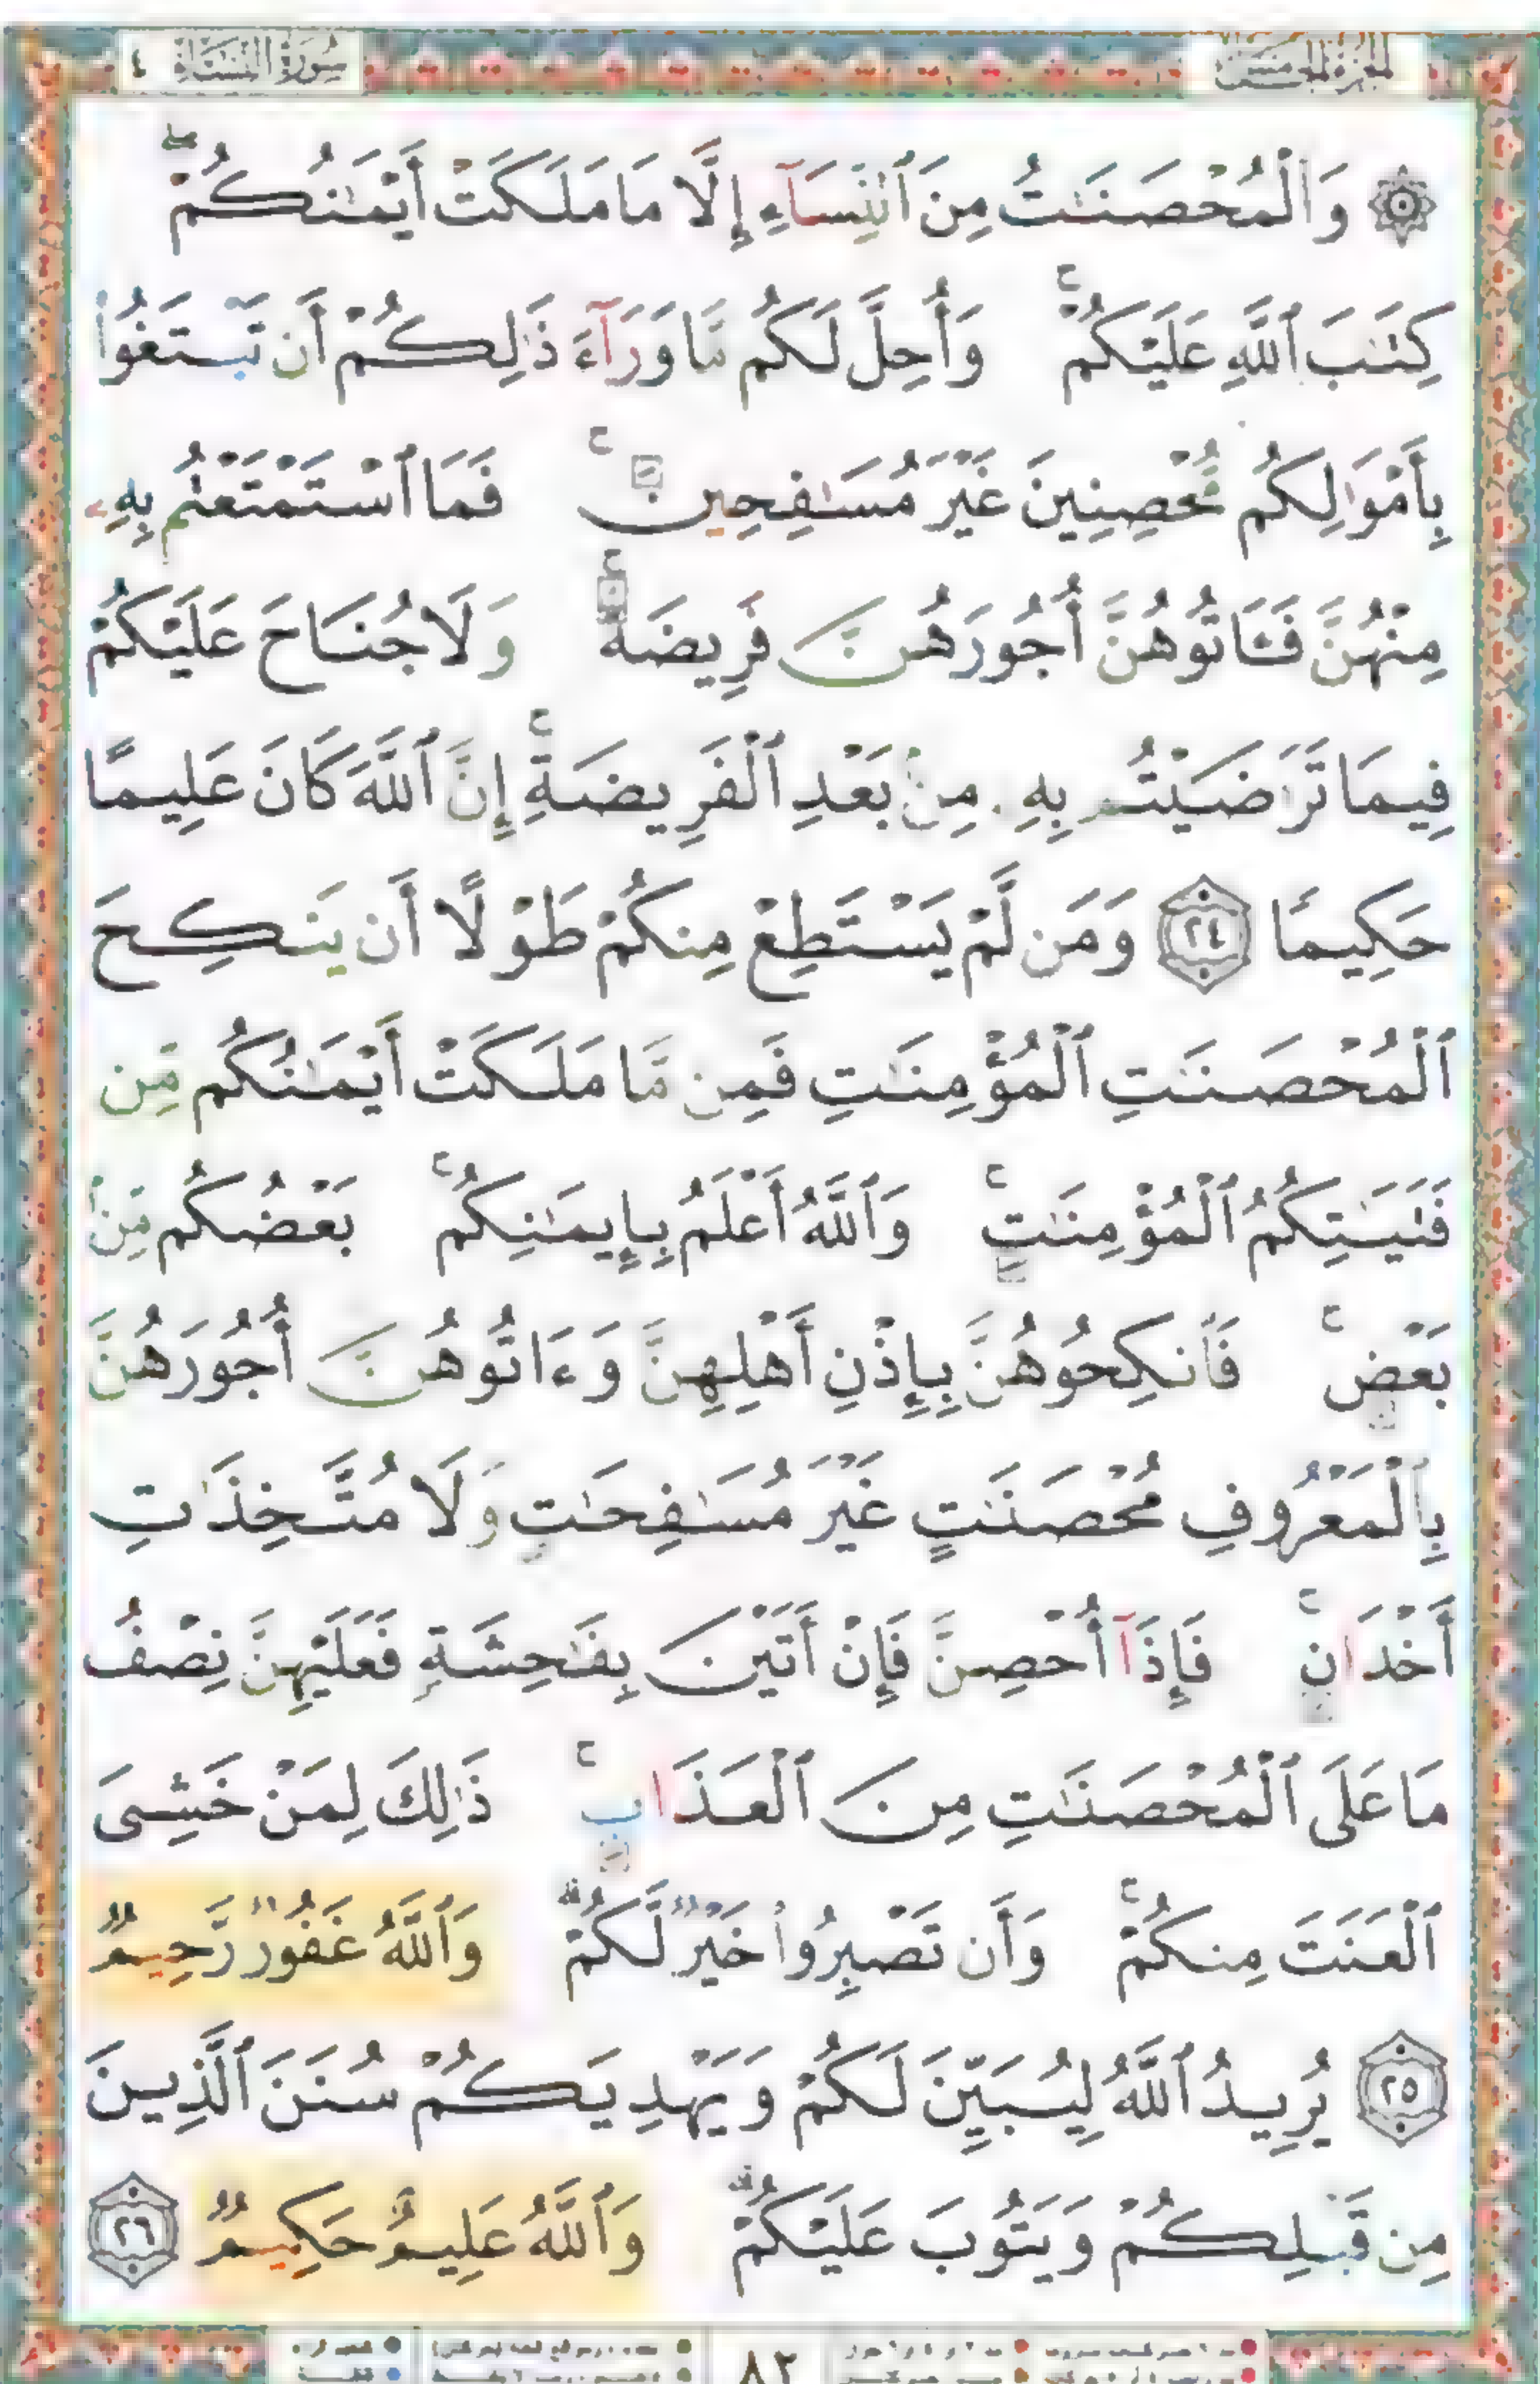 سُورَةُ النِّسَاءِ ٤
الجزء الخامس
۞ وَٱلْمُحْصَنَـٰتُ مِنَ ٱلنِّسَآءِ إِلَّا مَا مَلَكَتْ أَيْمَـٰنُكُمْ ۖ
كِتَـٰبَ ٱللَّهِ عَلَيْكُمْ ۚ وَأُحِلَّ لَكُم مَّا وَرَآءَ ذَٰلِكُمْ أَن تَبْتَغُوا۟
بِأَمْوَٰلِكُم مُّحْصِنِينَ غَيْرَ مُسَـٰفِحِينَ ۚ فَمَا ٱسْتَمْتَعْتُم بِهِۦ
مِنْهُنَّ فَـَٔاتُوهُنَّ أُجُورَهُنَّ فَرِيضَةً ۚ وَلَا جُنَاحَ عَلَيْكُمْ
فِيمَا تَرَٰضَيْتُم بِهِۦ مِنۢ بَعْدِ ٱلْفَرِيضَةِ ۚ إِنَّ ٱللَّهَ كَانَ عَلِيمًا
حَكِيمًا ٢٤ وَمَن لَّمْ يَسْتَطِعْ مِنكُمْ طَوْلًا أَن يَنكِحَ
ٱلْمُحْصَنَـٰتِ ٱلْمُؤْمِنَـٰتِ فَمِن مَّا مَلَكَتْ أَيْمَـٰنُكُم مِّن
فَتَيَـٰتِكُمُ ٱلْمُؤْمِنَـٰتِ ۚ وَٱللَّهُ أَعْلَمُ بِإِيمَـٰنِكُم ۚ بَعْضُكُم مِّنۢ
بَعْضٍ ۚ فَٱنكِحُوهُنَّ بِإِذْنِ أَهْلِهِنَّ وَءَاتُوهُنَّ أُجُورَهُنَّ
بِٱلْمَعْرُوفِ مُحْصَنَـٰتٍ غَيْرَ مُسَـٰفِحَـٰتٍ وَلَا مُتَّخِذَٰتِ
أَخْدَانٍ ۚ فَإِذَآ أُحْصِنَّ فَإِنْ أَتَيْنَ بِفَـٰحِشَةٍ فَعَلَيْهِنَّ نِصْفُ
مَا عَلَى ٱلْمُحْصَنَـٰتِ مِنَ ٱلْعَذَابِ ۚ ذَٰلِكَ لِمَنْ خَشِىَ
ٱلْعَنَتَ مِنكُمْ ۚ وَأَن تَصْبِرُوا۟ خَيْرٌ لَّكُمْ ۗ وَٱللَّهُ غَفُورٌ رَّحِيمٌ
٢٥ يُرِيدُ ٱللَّهُ لِيُبَيِّنَ لَكُمْ وَيَهْدِيَكُمْ سُنَنَ ٱلَّذِينَ
مِن قَبْلِكُمْ وَيَتُوبَ عَلَيْكُمْ ۗ وَٱللَّهُ عَلِيمٌ حَكِيمٌ ٢٦
٨٢